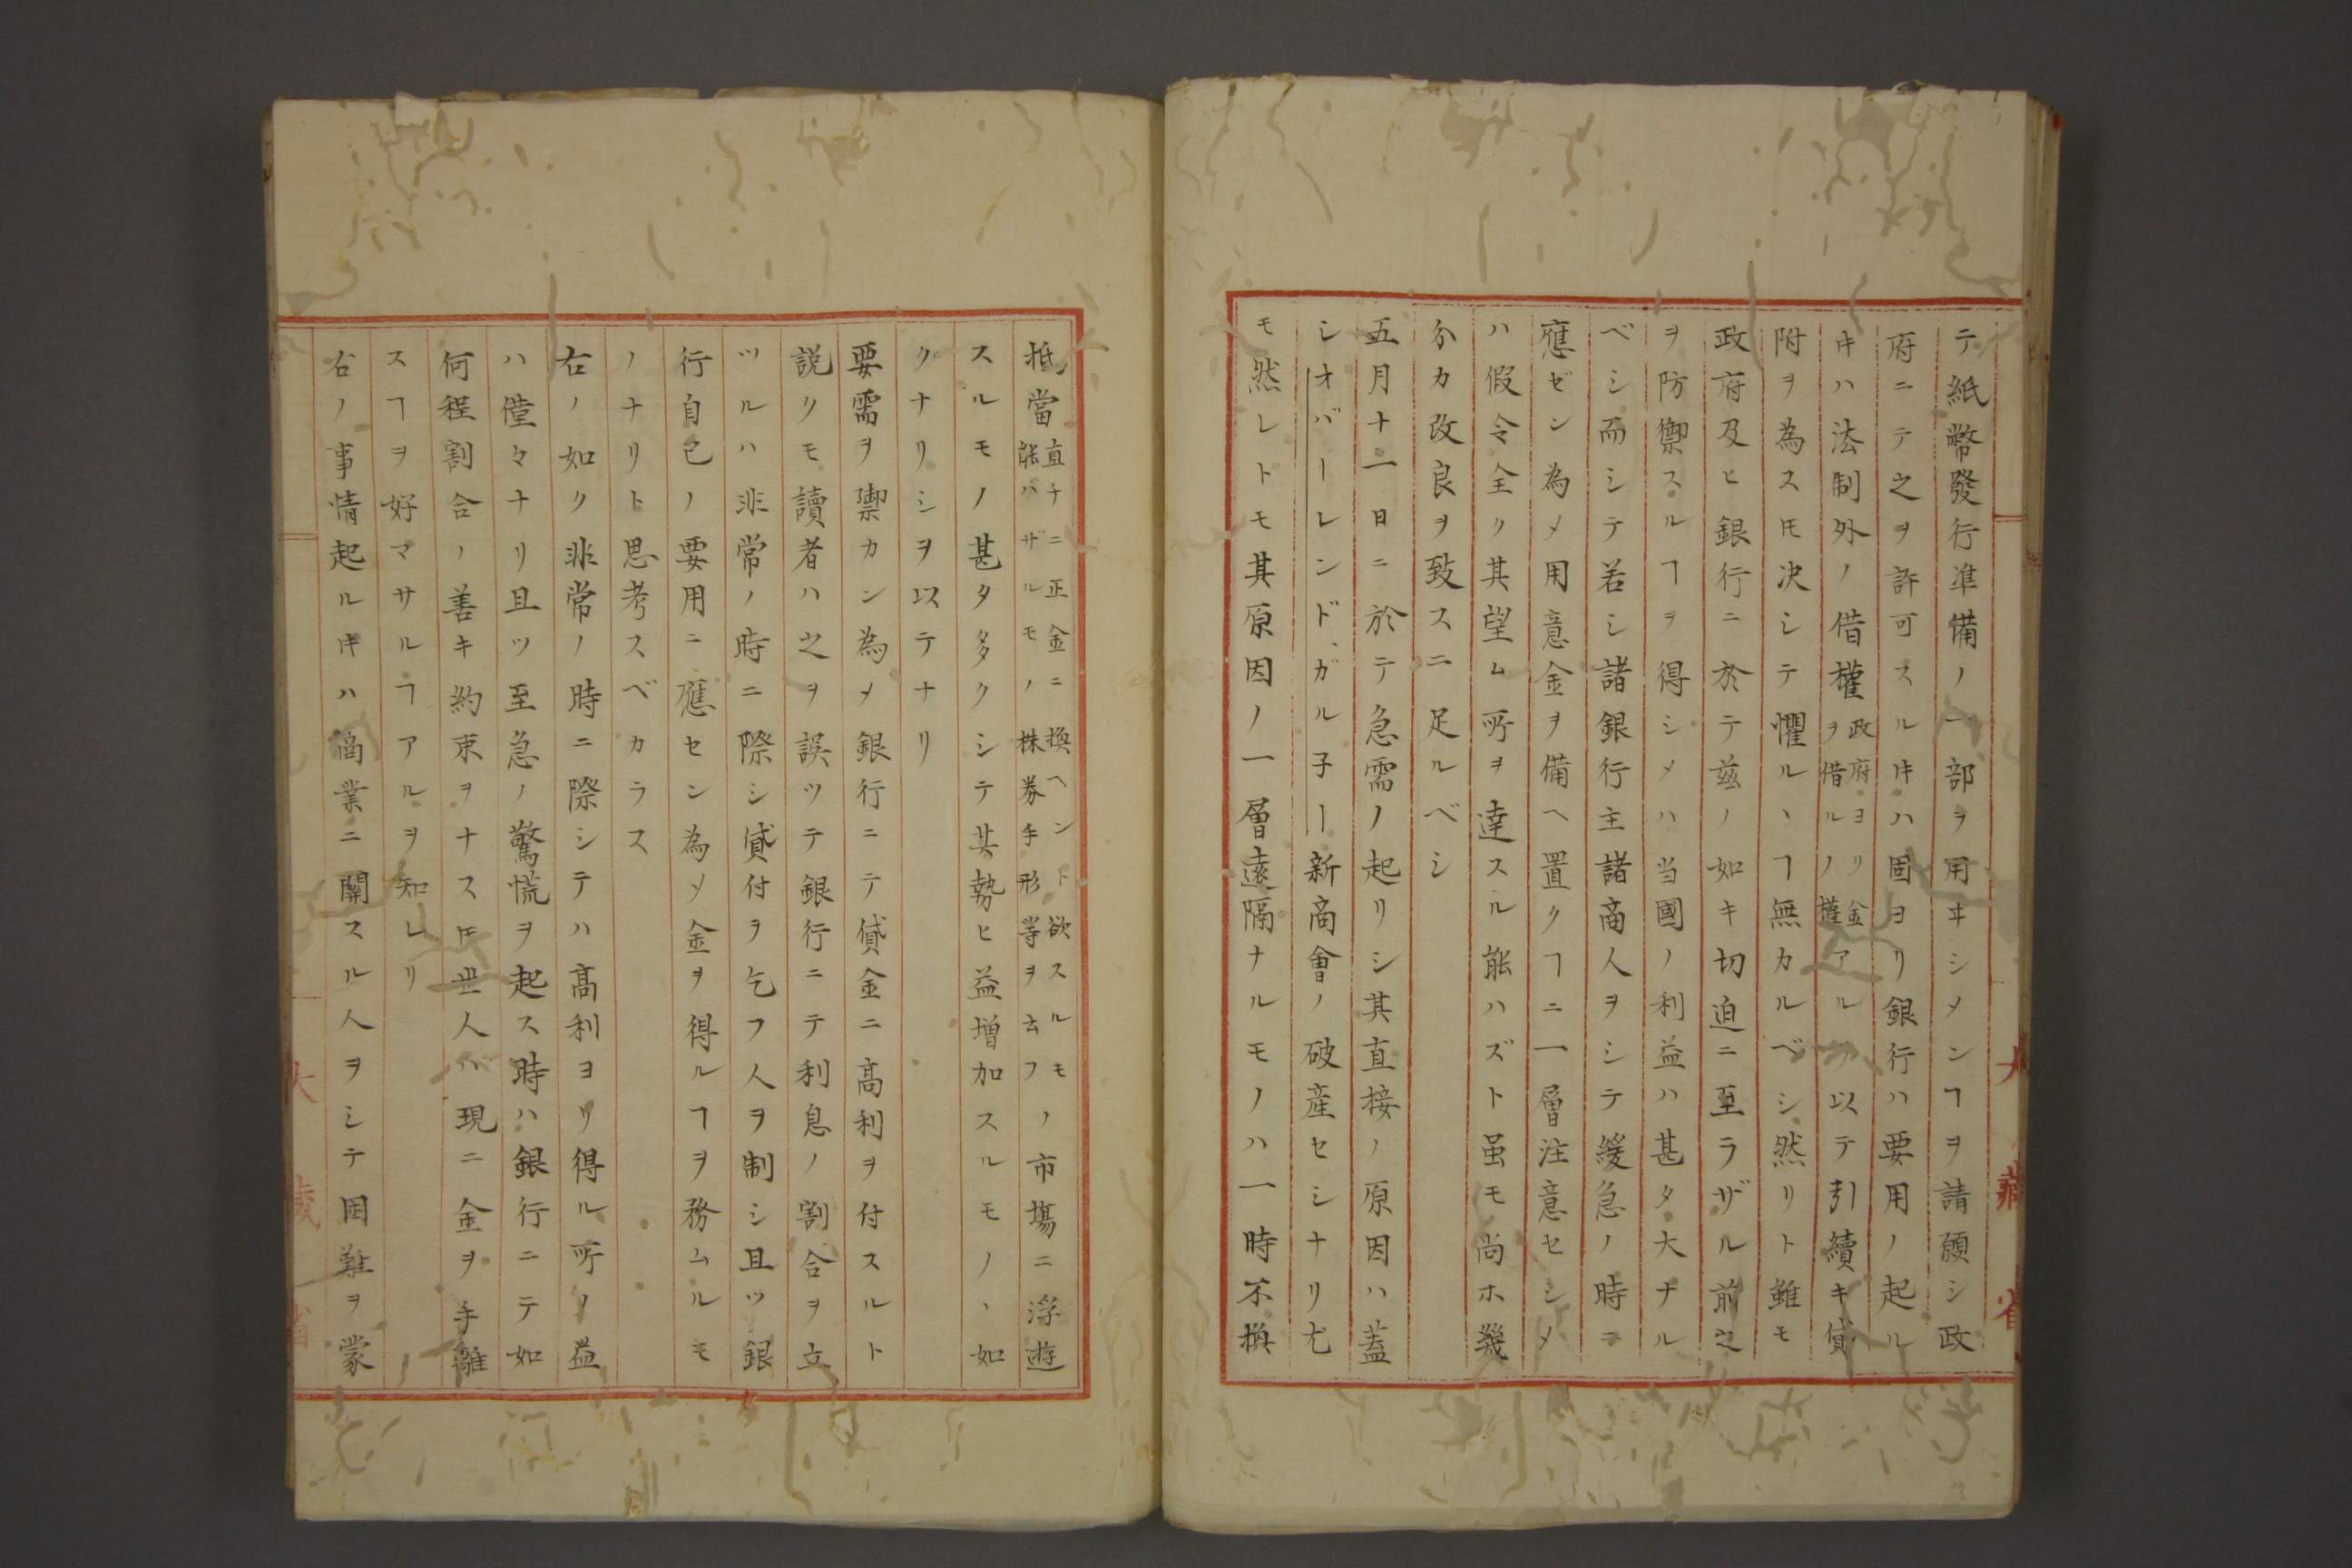 テ紙幣發行凖備ノ一部ヲ用ヰシメンヿヲ請願シ政
府ニテ之ヲ許可スル𪜈ハ固ヨリ銀行ハ要用ノ起ル
キハ法制外ノ借權政府ヨリ金ヲ借ルノ權アルヲ以テ引續キ貸
附ヲ為スモ决シテ懼ルヽヿ無カルベシ然リト雖モ
政府及ヒ銀行ニ於テ兹ノ如キ切迫ニ至ラザル前之
ヲ防禦スルヿヲ得シメハ当國ノ利益ハ甚タ大ナル
ベシ而シテ若シ諸銀行主諸商人ヲシテ緩急ノ時ニ
應ゼン為メ用意金ヲ備ヘ置クヿニ一層注意セシメ
ハ假令全ク其望ム所ヲ達スル能ハズト虽モ尚ホ幾
分カ改良ヲ致スニ足ルベシ
五月十一日ニ於テ急需ノ起リシ其直接ノ原因ハ蓋
シオバーレンド、ガル子ー新商會ノ破産セシナリ尤
モ然レトモ其原因ノ一層遠隔ナルモノハ一時不換
抵當直チニ正金ニ換ヘント欲スルモ能ハザルモノ株券手形等ヲ云フノ市塲ニ浮遊
スルモノ甚タ多クシテ其勢ヒ益増加スルモノヽ如
クナリシヲ以テナリ
要需ヲ禦カン為メ銀行ニテ貸金ニ高利ヲ付スルト
説クモ讀者ハ之ヲ誤ツテ銀行ニテ利息ノ割合ヲ立
ツルハ非常ノ時ニ際シ貸付ヲ乞フ人ヲ制シ且ツ銀
行自己ノ要用ニ應セン為メ金ヲ得ルヿヲ務ムルモ
ノナリト思考スベカラス
右ノ如ク非常ノ時ニ際シテハ高利ヨリ得ル所ノ益
ハ僅々ナリ且ツ至急ノ驚慌ヲ起ス時ハ銀行ニテ如
何程割合ノ善キ約束ヲナスモ世人ハ現ニ金ヲ手離
スヿヲ好マサルヿアルヲ知レリ
右ノ事情起ルキハ商業ニ關スル人ヲシテ困難ヲ蒙
大藏省
大藏省